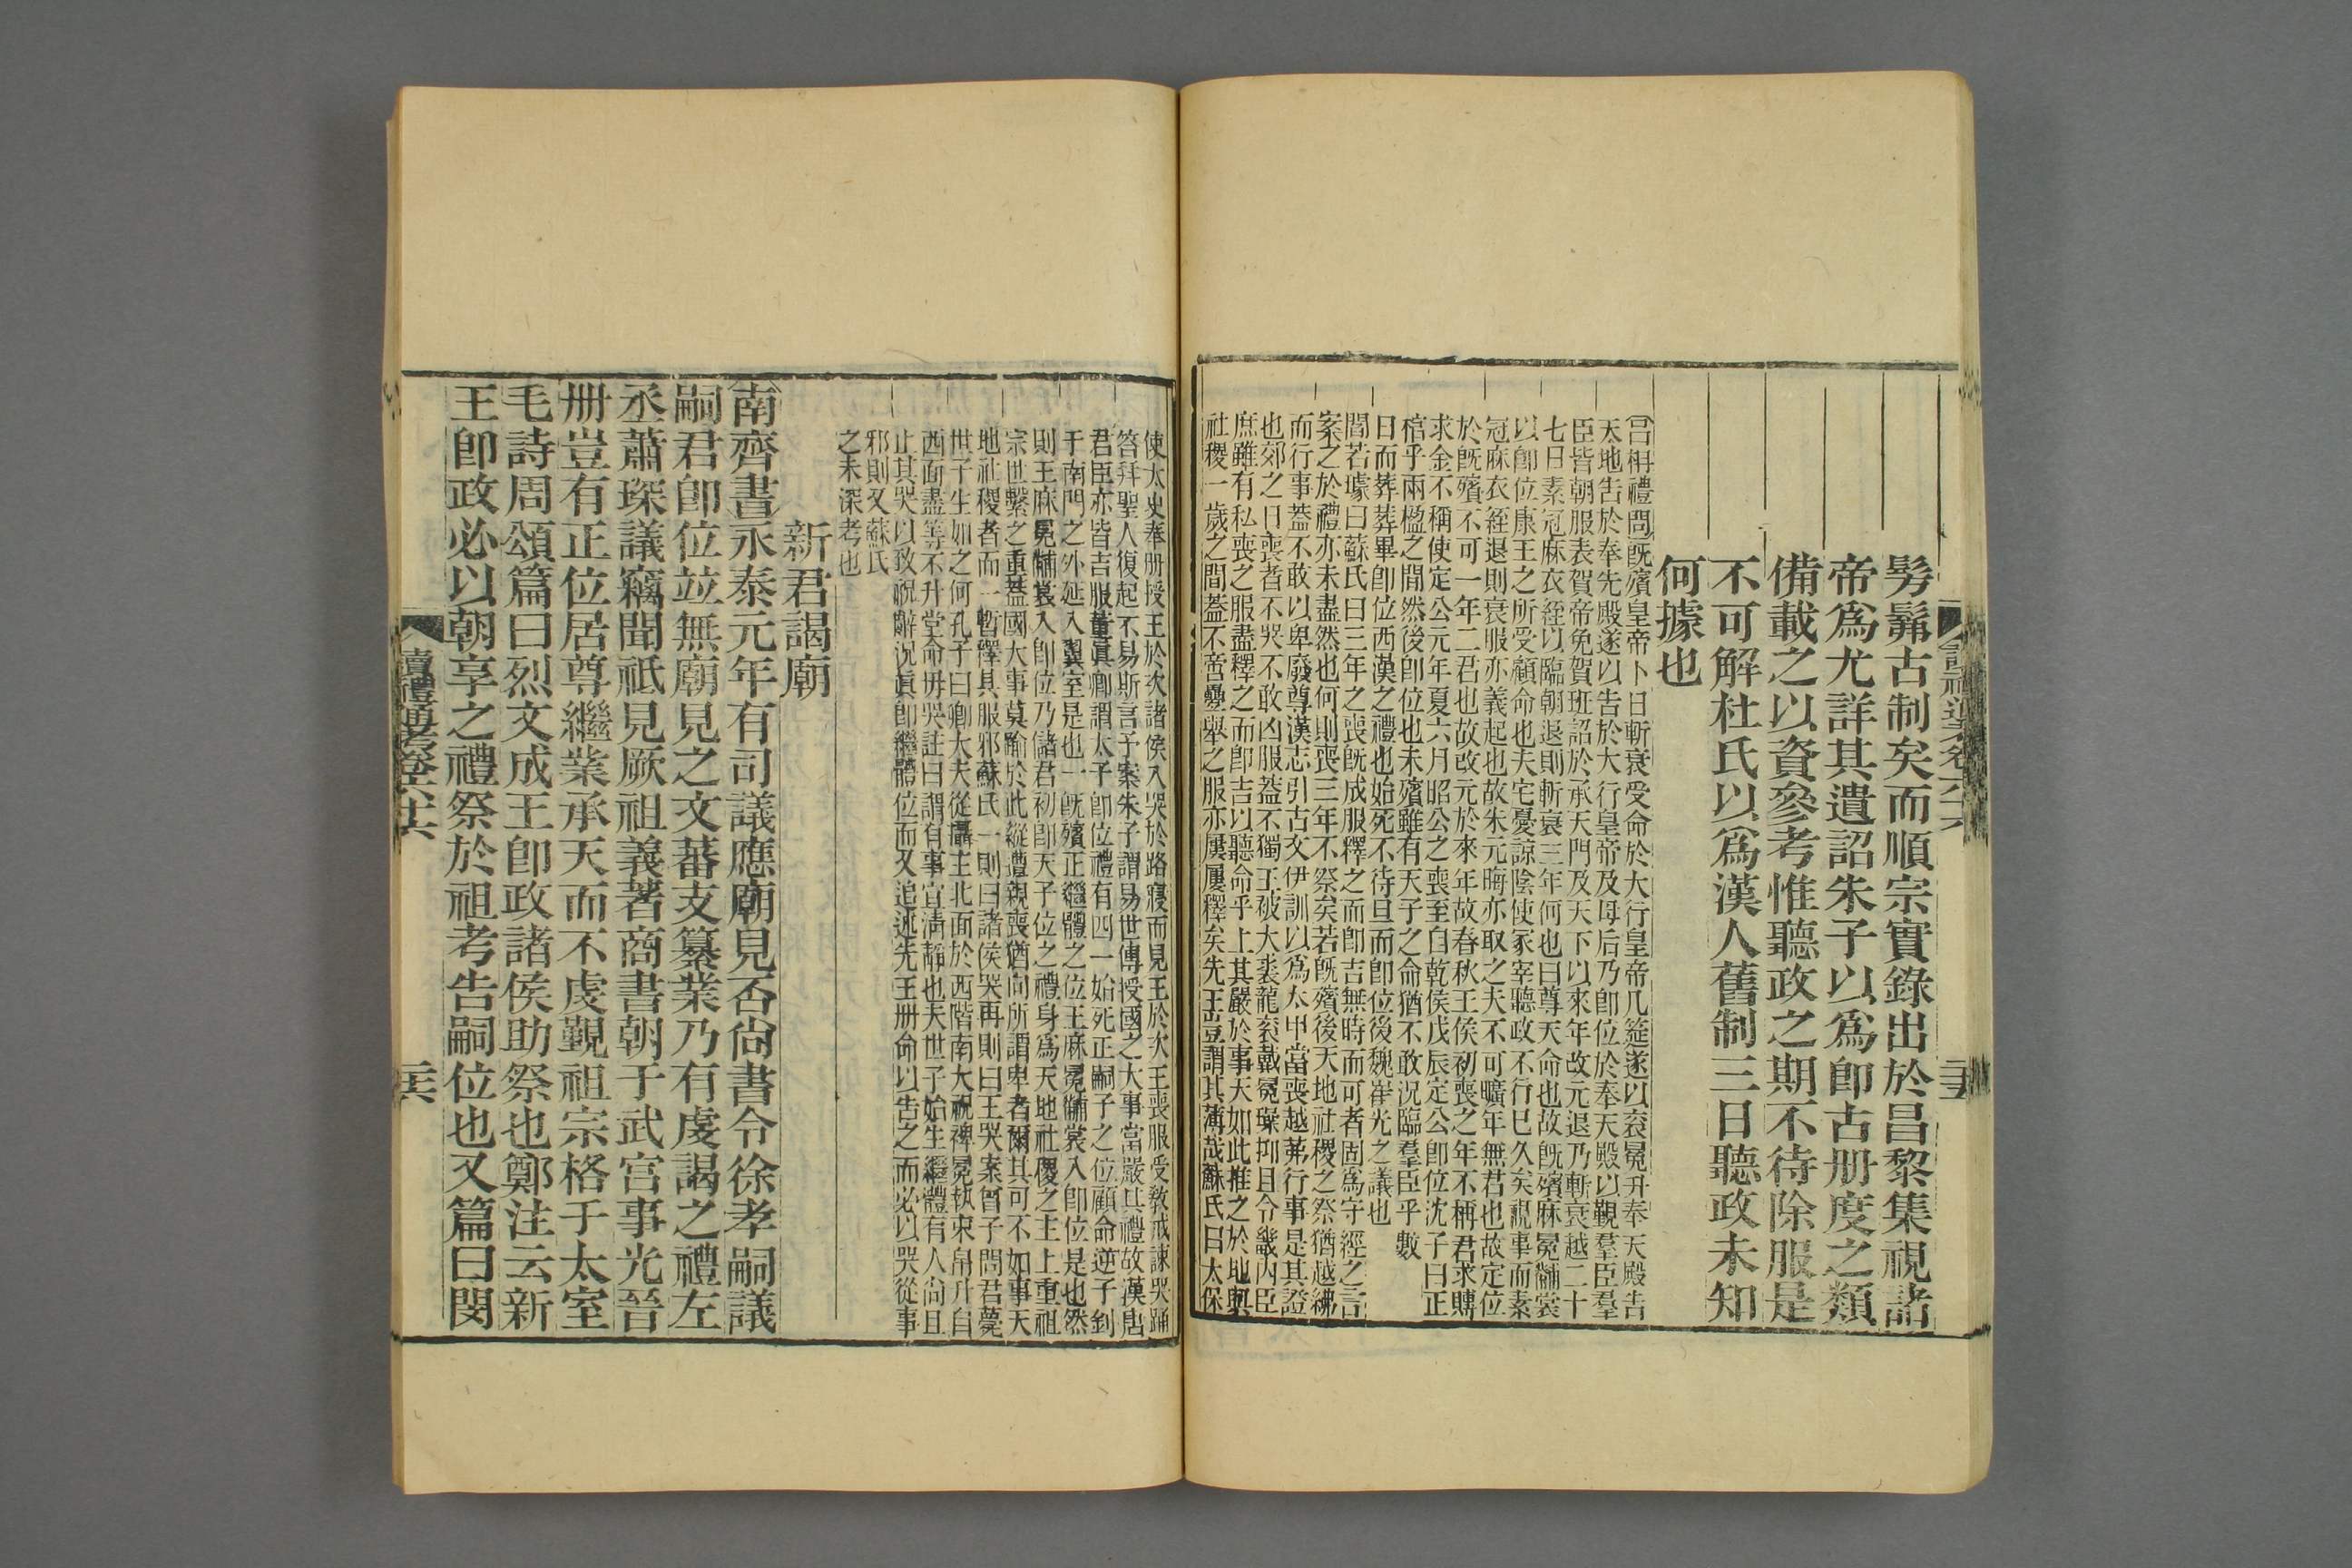 髣髴古制矣而順宗實錄出於昌黎集視諸
帝爲尤詳其遺詔朱子以爲卽古册度之類
備載之以資參考惟聽政之期不待除服是
不可解杜氏以爲漢人舊制三日聽政未知
何據也
呂柟禮問旣殯皇帝卜日斬衰受命於大行皇帝几筵遂以袞冕升奉天殿告
天地告於奉先殿遂以告於大行皇帝及母后乃卽位於奉天殿以覲羣臣羣
臣皆朝服表賀帝免賀班詔於承天門及天下以來年改元退乃斬衰越二十
七日素冠麻衣絰以臨朝退則斬衰三年何也曰尊天命也故旣殯麻冕黼裳
以卽位康王之所受顧命也夫宅憂諒陰使冢宰聽政不行已久矣視事而素
冠麻衣絰退則衰服亦義起也故朱元晦亦取之夫不可曠年無君也故定位
於旣殯不可一年二君也故改元於來年故春秋王侯初喪之年不稱君求賻
求金不稱使定公元年夏六月昭公之喪至自乾侯戊辰定公卽位沈子曰正
棺乎兩楹之閒然後卽位也未殯雖有天子之命猶不敢況臨羣臣乎數
日而葬葬畢卽位西漢之禮也始死不待旦而卽位後魏崔光之議也
閻若璩曰蘇氏曰三年之喪旣成服釋之而卽吉無時而可者固爲守經之言
案之於禮亦未盡然也何則喪三年不祭矣若旣殯後天地社稷之祭猶越紼
而行事蓋不敢以卑廢尊漢志引古文伊訓以爲太甲當喪越茀行事是其證
也郊之日喪者不哭不敢凶服蓋不獨王被大裘龍袞戴冕璪抑且令畿內臣
庶雖有私喪之服盡釋之而卽吉以聽命乎上其嚴於事天如此推之於地與
社稷一歲之間蓋不啻疊舉之服亦屢屢釋矣先王豈謂其薄哉蘇氏曰太保
使太史奉册授王於次諸侯入哭於路寢而見王於次王喪服受敎戒諫哭踊
答拜聖人復起不易斯言予案朱子謂易世傳授國之大事當嚴其禮故漢唐
君臣亦皆吉服董眞卿謂太子卽位禮有四一始死正嗣子之位顧命逆子釗
于南門之外延入翼室是也一旣殯正繼體之位王麻冕黼裳入卽位是也然
則王麻冕黼裳入卽位乃儲君初卽天子位之禮身爲天地社稷之主上重祖
宗世繫之重蓋國大事莫踰於此縱遭親喪猶向所謂卑者爾其可不如事天
地社稷者而一暫釋其服邪蘇氏一則曰諸侯哭再則曰王哭案曾子問君薨
世子生如之何孔子曰卿大夫從攝主北面於西階南大祝裨冕執束帛升自
西面盡等不升堂命毋哭註曰謂有事宜淸靜也夫世子始生繼體有人尙且
止其哭以致祝辭況眞卽繼體位而又追述先王册命以告之而必以哭從事
邪則又蘇氏
之未深考也
新君謁廟
南齊書永泰元年有司議應廟見否尙書令徐孝嗣議
嗣君卽位竝無廟見之文蕃支纂業乃有虔謁之禮左
丞蕭琛議竊聞祗見厥祖義著商書朝于武宮事光晉
册豈有正位居尊繼業承天而不虔覲祖宗格于太室
毛詩周頌篇曰烈文成王卽政諸侯助祭也鄭注云新
王卽政必以朝享之禮祭於祖考告嗣位也又篇曰閔
讀禮通考卷六十六
二十六